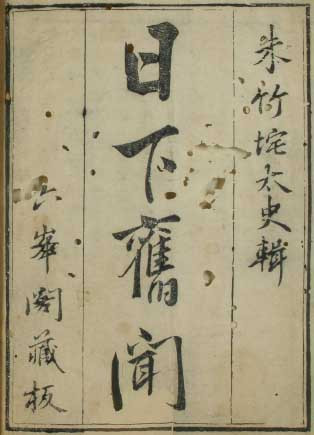 朱竹垞太史輯
日下舊聞
六峯閣藏板